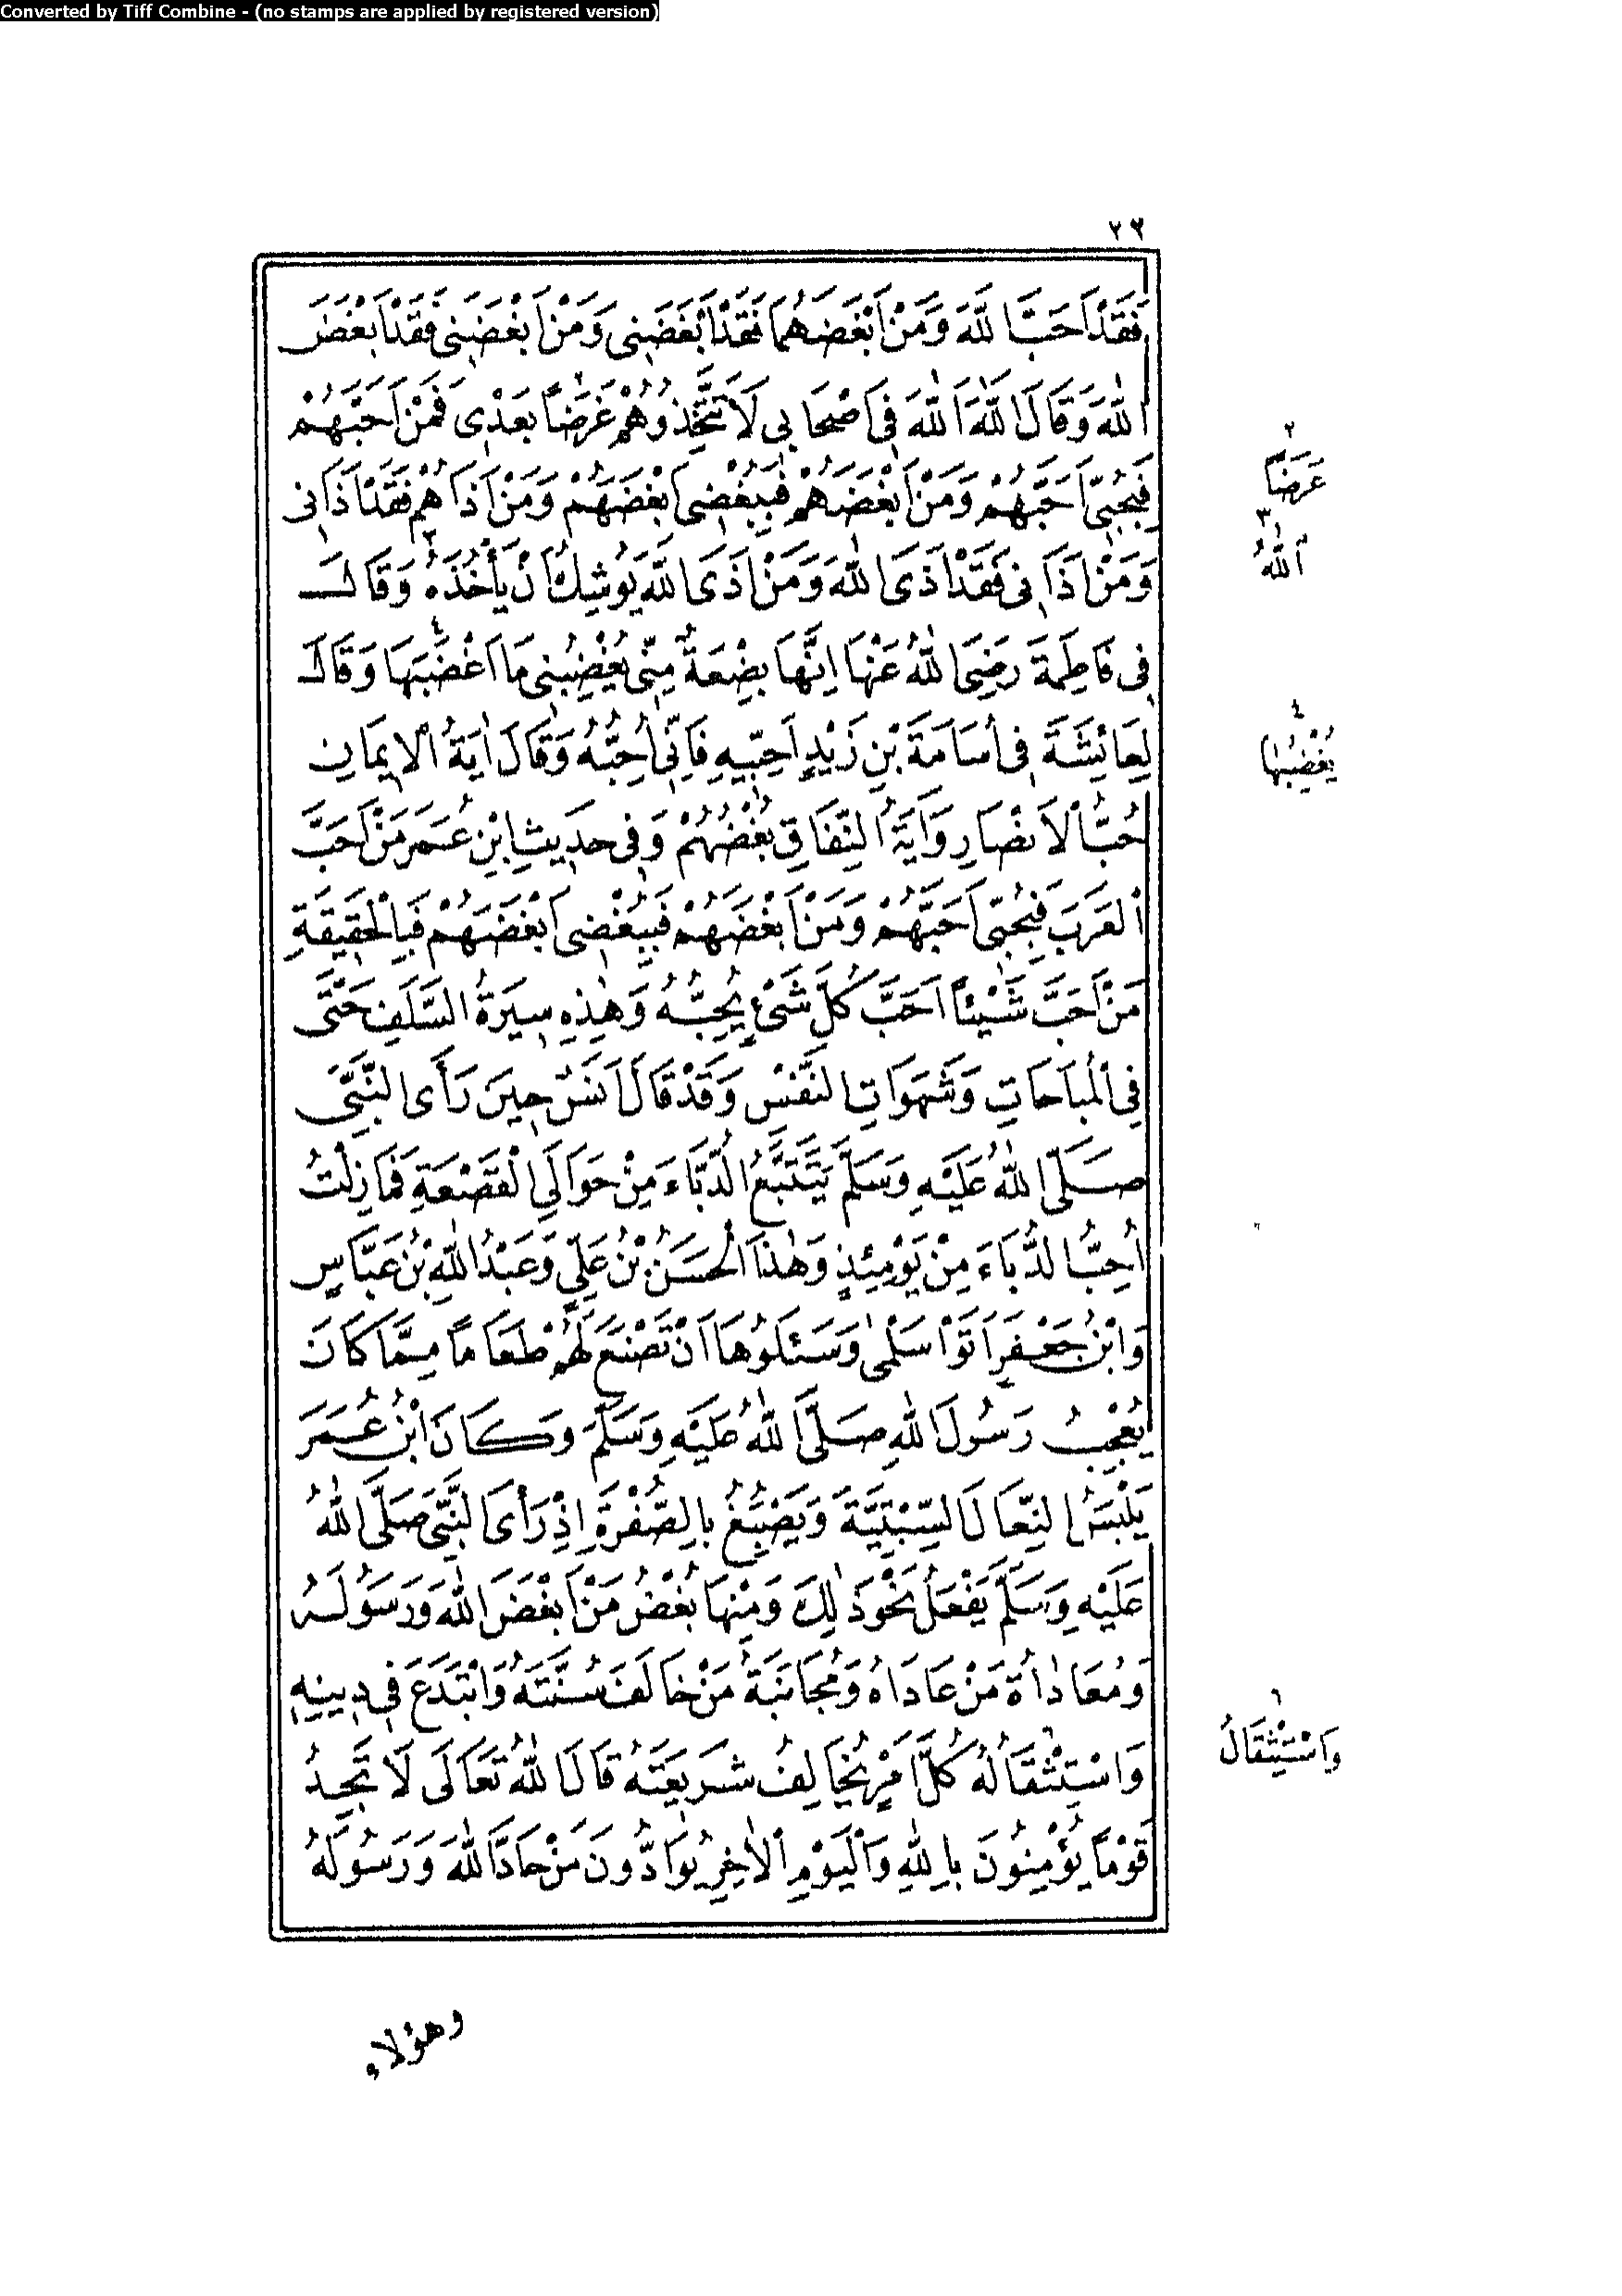 Converted by Tiff Combine - (no stamps are applied by registered version)
٢٦
فَقَدْ اَحَبَّ اللّٰهَ وَمَنْ اَبْغَضَهُمَا فَقَدْ اَبْغَضَنِى وَمَنْ اَبْغَضَنِى فَقَدْ اَبْغَضَ
اللّٰهَ وَقَالَ اللّٰهَ اللّٰهَ فِى اَصْحَابِى لَا تَتَّخِذُوهُمْ غَرَضًا بَعْدِى فَمَنْ اَحَبَّهُمْ
فَبِحُبِّى اَحَبَّهُمْ وَمَنْ اَبْغَضَهُمْ فَبِبُغْضِى اَبْغَضَهُمْ وَمَنْ اٰذَاهُمْ فَقَدْ اٰذَانِى
وَمَنْ اٰذَانِى فَقَدْ اٰذَى اللّٰهَ وَمَنْ اٰذَى اللّٰهَ يُوشِكُ اَنْ يَأْخُذَهُ وَقَالَ
فِى فَاطِمَةَ رَضِىَ اللّٰهُ عَنْهَا اِنَّهَا بِضْعَةٌ مِنِّى يُغْضِبُنِى مَا اَغْضَبَهَا وَقَالَ
لِعَائِشَةَ فِى اُسَامَةَ بْنِ زَيْدٍ اَحِبِّيهِ فَاِنِّى اُحِبُّهُ وَقَالَ اٰيَةُ الْاِيمَانِ
حُبُّ الْاَنْصَارِ وَاٰيَةُ النِّفَاقِ بُغْضُهُمْ وَفِى حَدِيثِ ابْنِ عُمَرَ مَنْ اَحَبَّ
الْعَرَبَ فَبِحُبِّى اَحَبَّهُمْ وَمَنْ اَبْغَضَهُمْ فَبِبُغْضِى اَبْغَضَهُمْ فَبِالْحَقِيقَةِ
مَنْ اَحَبَّ شَيْئًا اَحَبَّ كُلَّ شَىْءٍ يُحِبُّهُ وَهٰذِهِ سِيرَةُ السَّلَفِ حَتَّى
فِى الْمُبَاحَاتِ وَشَهَوَاتِ النَّفْسِ وَقَدْ قَالَ اَنَسٌ حِينَ رَأَى النَّبِىَّ
صَلَّى اللّٰهُ عَلَيْهِ وَسَلَّمَ يَتَتَبَّعُ الدُّبَّاءَ مِنْ حَوَالَىِ الْقَصْعَةِ فَمَا زِلْتُ
اُحِبُّ الدُّبَّاءَ مِنْ يَوْمِئِذٍ وَهٰذَا الْحَسَنُ بْنُ عَلِىٍّ وَعَبْدُ اللّٰهِ بْنُ عَبَّاسٍ
وَابْنُ جَعْفَرٍ اَتَوْا سَلْمٰى وَسَئَلُوهَا اَنْ تَصْنَعَ لَهُمْ طَعَامًا مِمَّا كَانَ
يُعْجِبُ رَسُولَ اللّٰهِ صَلَّى اللّٰهُ عَلَيْهِ وَسَلَّمَ وَكَانَ ابْنُ عُمَرَ
يَلْبَسُ النِّعَالَ السِّبْتِيَّةَ وَيَصْبُغُ بِالصُّفْرَةِ اِذْ رَأَى النَّبِىَّ صَلَّى اللّٰهُ
عَلَيْهِ وَسَلَّمَ يَفْعَلُ نَحْوَ ذٰلِكَ وَمِنْهَا بُغْضُ مَنْ اَبْغَضَ اللّٰهَ وَرَسُولَهُ
وَمُعَادَاةُ مَنْ عَادَاهُ وَمُجَانَبَةُ مَنْ خَالَفَ سُنَّتَهُ وَابْتَدَعَ فِى دِينِهِ
وَاسْتِثْقَالُهُ كُلَّ اَمْرٍ يُخَالِفُ شَرِيعَتَهُ قَالَ اللّٰهُ تَعَالَى لَا تَجِدُ
قَوْمًا يُؤْمِنُونَ بِاللّٰهِ وَالْيَوْمِ الْاٰخِرِ يُوَادُّونَ مَنْ حَادَّ اللّٰهَ وَرَسُولَهُ
٢
عَرَضًا
٣
اَللّٰهُ
٤
يُغْضِبُهَا
٦
وَاسْتِثْقَالُ
وهؤلاء